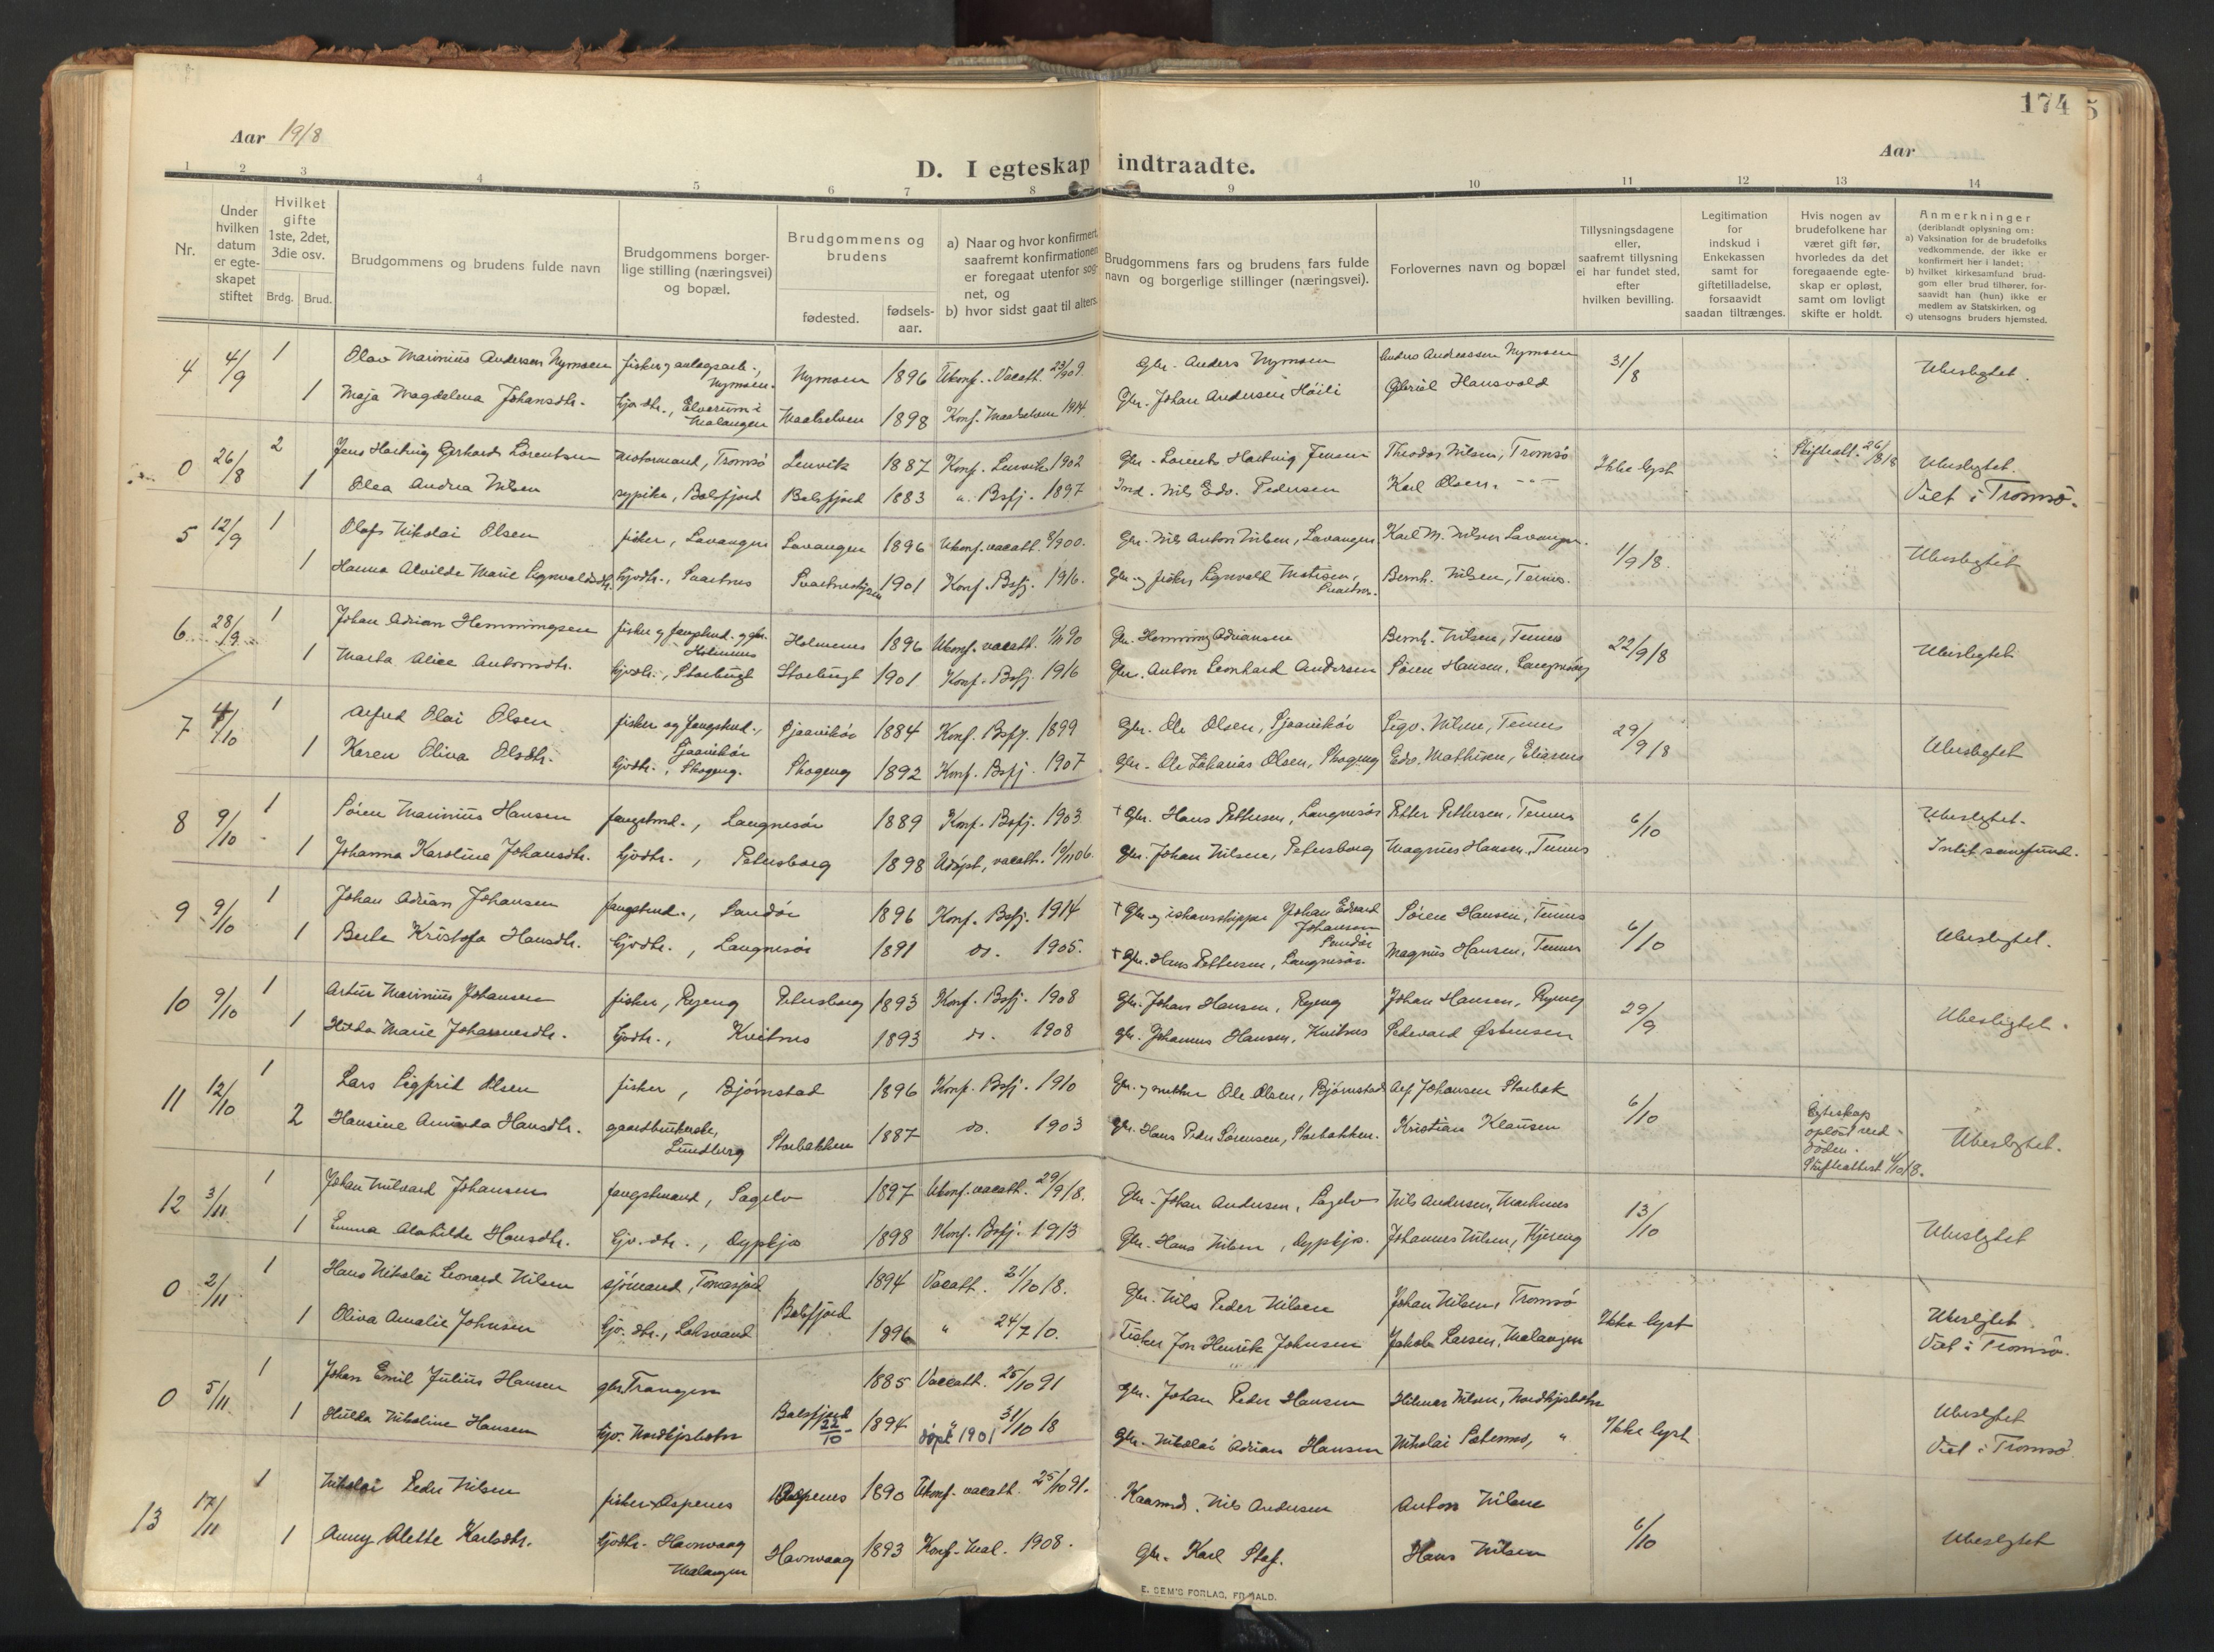 174
Aar 1918
Aar
D. I egteskap indtraadte.
1 2 3 4 5 6 7 8 9 10 11 12 13 14
Nr.
Under hvilken datum er egte-skapet stiftet
Hvilket gifte 1ste, 2det, 3die osv.
Brdg. Brud.
Brudgommens og brudens fulde navn
Brudgommens borger-lige stilling (næringsvei) og bopæl.
Brudgommens og brudens
fødested.
fødsels-aar.
a) Naar og hvor konfirmert, saafremt konfirmationen er foregaat utenfor sog-net, og
b) hvor sidst gaat til alters.
Brudgommens fars og brudens fars fulde navn og borgerlige stillinger (næringsvei).
Forlovernes navn og bopæl
Tillysningsdagene eller, saafremt tillysning ei har fundet sted, efter hvilken bevilling.
Legitimation for indskud i Enkekassen samt for giftetilladelse, forsaavidt saadan tiltrænges.
Hvis nogen av brudefolkene har været gift før, hvorledes da det foregaaende egte-skap er opløst, samt om lovligt skifte er holdt.
Anmerkninger
(deriblandt oplysning om:
a) Vaksination for de brudefolks vedkommende, der ikke er konfirmert her i landet;
b) hvilket kirkesamfund brud-gom eller brud tilhører, for-saavidt han (hun) ikke er medlem av Statskirken, og
c) utensogns bruders hjemsted.
4 4/9 1 Olav Marinius Andersen Nymoen fisker og anlegsarb., Nymoen. Nymoen 1896 Ukonf. Vacatt. 23/9 09. Gbr. Anders Nymoen Anders Andreassen Nymoen 31/8 Ubeslegtet.
1 Maja Magdalena Johansdtr. Gjvdtr., Elverum i Malangen Maalselven 1898 Konf. Maalselven 1914. Gbr. Johan Andersen Høili Gabriel Hansvold
0 26/8 2 Jens Hartvig Gerhard Lorentsen motormand, Tromsø Lenvik 1887 Konf. Lenvik 1902 Gbr. Lorents Hartvig Jensen Theodor Nilsen, Tromsø Ikke lyst Skifteatt. 26/8 18 Ubeslegtet.
1 Olea Andrea Nilsen sypike, Balsfjord Balsfjord 1883 " Bsfj. 1897 Ind. Nils Edv. Pedersen Karl Olsen. - " - Viet i Tromsø.
5 12/9 1 Olaf Nikolai Olsen fisker, Lavangen Lavangen 1896 Ukonf. vacatt. 8/9 00. Gbr. Nils Anton Nilsen, Lavangen. Karl M. Nilsen Lavangen. 1/9 18. Ubeslegtet
1 Hanna Alvilde Marie Sigvaldsdtr. Gjvdtr., Svartnes 1901 Konf. Bsfj. 1916. Gbr. og fisker Sigvald Matisen, Svartnes. Bernh. Nilsen, Tennes.
6 28/9 1 Johan Adrian Hemmingsen fisker og fangstmd. og gbr. Holmenes Holmenes 1896 Ukonf. vacatt. Gbr. Hemming Adriansen Bernh. Nilsen, Tennes 22/9 18 Ubeslegtet
1 Marta Alice Antonsdtr. Gjvdtr., Storbugt Storbugt 1901 Konf. Bsfj. 1916 Gbr. Anton Leonhard Andersen Søren Hansen, Langnesør
7 4/10 1 Alfred Olai Olsen fisker og fangstmd., Sjaavikør Sjaavikør 1884 Konf. Bsfj. 1899 Gbr. Ole Olsen, Sjaavikør Sigv. Nilsen, Tennes 29/9 18 Ubeslegtet
1 Karen Oliva Olsdtr. Gjvdtr., Skogeng. Skogeng 1892 Konf. Bsfj. 1907 Gbr. Ole Zakarias Olsen, Skogeng Edv. Mathisen, Eliasnes
8 9/10 1 Søren Marinius Hansen fangstmd., Langnesør 1889 Konf. Bsfj. 1903 † Gbr. Hans Pettersen, Langnesør Petter Pettersen, Tennes 6/10 Ubeslegtet.
1 Johanna Karoline Johansdtr. Gjvdtr., Petersborg 1898 Udøpt, vacatt. Gbr. Johan Nilsen, Petersborg Magnus Hansen, Tennes Intet samfund.
9 9/10 1 Johan Adrian Johansen fangstmd., Sandør 1896 Konf. Bsfj. 1914 † Gbr. og ishavsskipper Johan Edvard Johansen Sandør Søren Hansen, Tennes 6/10 Ubeslegtet.
1 Berle Kristofa Hansdtr. Gjvdtr., Langnesør 1891 do. 1905. † Gbr. Hans Pettersen, Langnesør. Magnus Hansen, Tennes
10 9/10 1 Artur Marinius Johansen fisker, Ryeng Petersborg 1893 Konf. Bsfj. 1908 Gbr. Johan Hansen, Ryeng Johan Hansen, Ryeng 29/9 Ubeslegtet.
1 Hilda Marie Johannesdtr. Gjvdtr., Kvitnes 1893 do. 1908 Gbr. Johannes Hansen, Kvitnes Edevard Østensen
11 12/10 1 Lars Sigfrid Olsen fisker, Bjørnstad 1896 Konf. Bsfj. 1910 Gbr. og snekker Ole Olsen, Bjørnstad Alf Johansen Storbak 6/10 Egteskap opløst ved døden. Skifteattest 4/10 18. Ubeslegtet.
2 Hansine Amanda Hansdtr. gaardbrukerske, Lundberg Storbakken 1887 do. 1903 Gbr. Hans Peder Sørensen, Storbakken. Kristian Klausen
12 3/11 1 Johan Milvard Johansen fangstmand, Sagelv 1897 Ukonf. vacatt. 29/9 18. Gbr. Johan Andersen, Sagelv Nils Andersen, Marknes 13/10 Ubeslegtet
1 Emma Matilde Hansdtr. Gjv. dtr., Dypkjo 1898 Konf. Bsfj. 1913 Gbr. Hans Nilsen, Dypkjo. Johannes Nilsen, Kjereng
0 2/11 1 Hans Nikolai Leonard Nilsen sjømand, Tomasjord Balsfjord 1894 Vacatt. 21/10 18. Gbr. Nils Peder Nilsen Johan Nilsen, Tromsø Ikke lyst Ubeslegtet
1 Oliva Amalie Johnsen Gjv. dtr., Laksvand 1896 " 24/7 10. Fisker Jon Henrik Johnsen Jakob Larsen, Malangen Viet i Tromsø.
0 5/11 1 Johan Emil Julius Hansen gbr. Trangen Balsfjord 1885 Vaccatt. 25/10 91 Gbr. Johan Peder Hansen Hilmar Nilsen, Nordkjosbotn Ikke lyst Ubeslegtet
1 Hulda Nikoline Hansen Gjv. Nordkjosbotn 22/10 - 1894 " 31/10 18 døpt 1901 Gbr. Nikolai Adrian Hansen Nikolai Sætermo, " Viet i Tromsø.
13 17/11 1 Nikolai Peder Nilsen fisker Aspenes Aspenes 1890 Ukonf. vacatt. 25/10 91. Kaarmd. Nils Andersen Anton Nilsen 6/10 Ubeslegtet
1 Anny Alette Karlsdtr. Gjvdtr. Havnvaag Malangen Havnvaag 1893 Konf. Mal. 1908. Gbr. Karl Staf. Hans Nilsen
E. SEM'S FORLAG, FR.HALD.